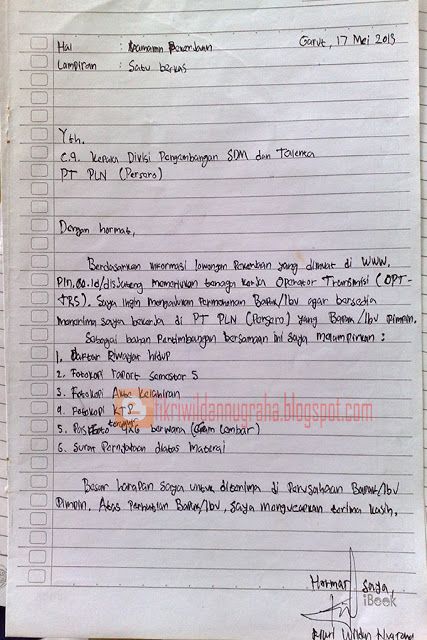 Garut, 17 Mei 2013
Hal : Lamaran Pekerjaan
Lampiran : Satu berkas
Yth.
c.q. Kepala Divisi Pengembangan SDM dan Talenta
PT PLN (Persero)
Dengan hormat,
Berdasarkan informasi lowongan Pekerjaan yang dimuat di WWW.
Pln.co.id/disjateng memerlukan tenaga kerja Operator Transmisi (OPT-
TRS). Saya ingin mengajukan Permohonan Bapak/Ibu agar bersedia
menerima saya bekerja di PT PLN (Persero) yang Bapak/Ibu Pimpin.
Sebagai bahan Pertimbangan bersamaan ini saya melampirkan :
1. Daftar Riwayat hidup
2. Fotokopi raport semester 5
3. Fotokopi Akte Kelahiran
4. Fotokopi KTP
fikriwildannugraha.blogspot.com
5. Pas Foto terbaru 4x6 berwarna (Enam lembar)
6. Surat Pernyataan diatas Materai
Besar harapan saya untuk diterima di Perusahaan Bapak/Ibu
Pimpin. Atas Perhatian Bapak/Ibu, saya mengucapkan terima kasih.
Hormat saya,
iBook
Fikri Wildan Nugraha